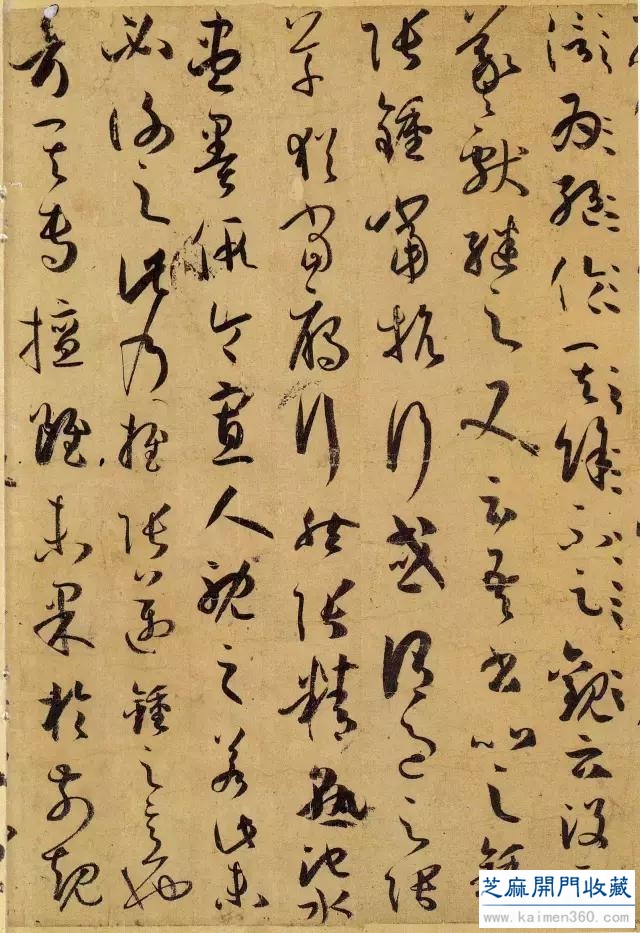 信為絕倫其餘不足觀云沒
羲獻繼之又云吾書比之鍾
張鍾當抗行或謂過之張
草猶當雁行然張精熟池水
盡墨假令寡人耽之若此未
必謝之此乃推張邁鍾之意也
考其專擅雖未果於前規
芝麻開門收藏
www.kaimen360.com